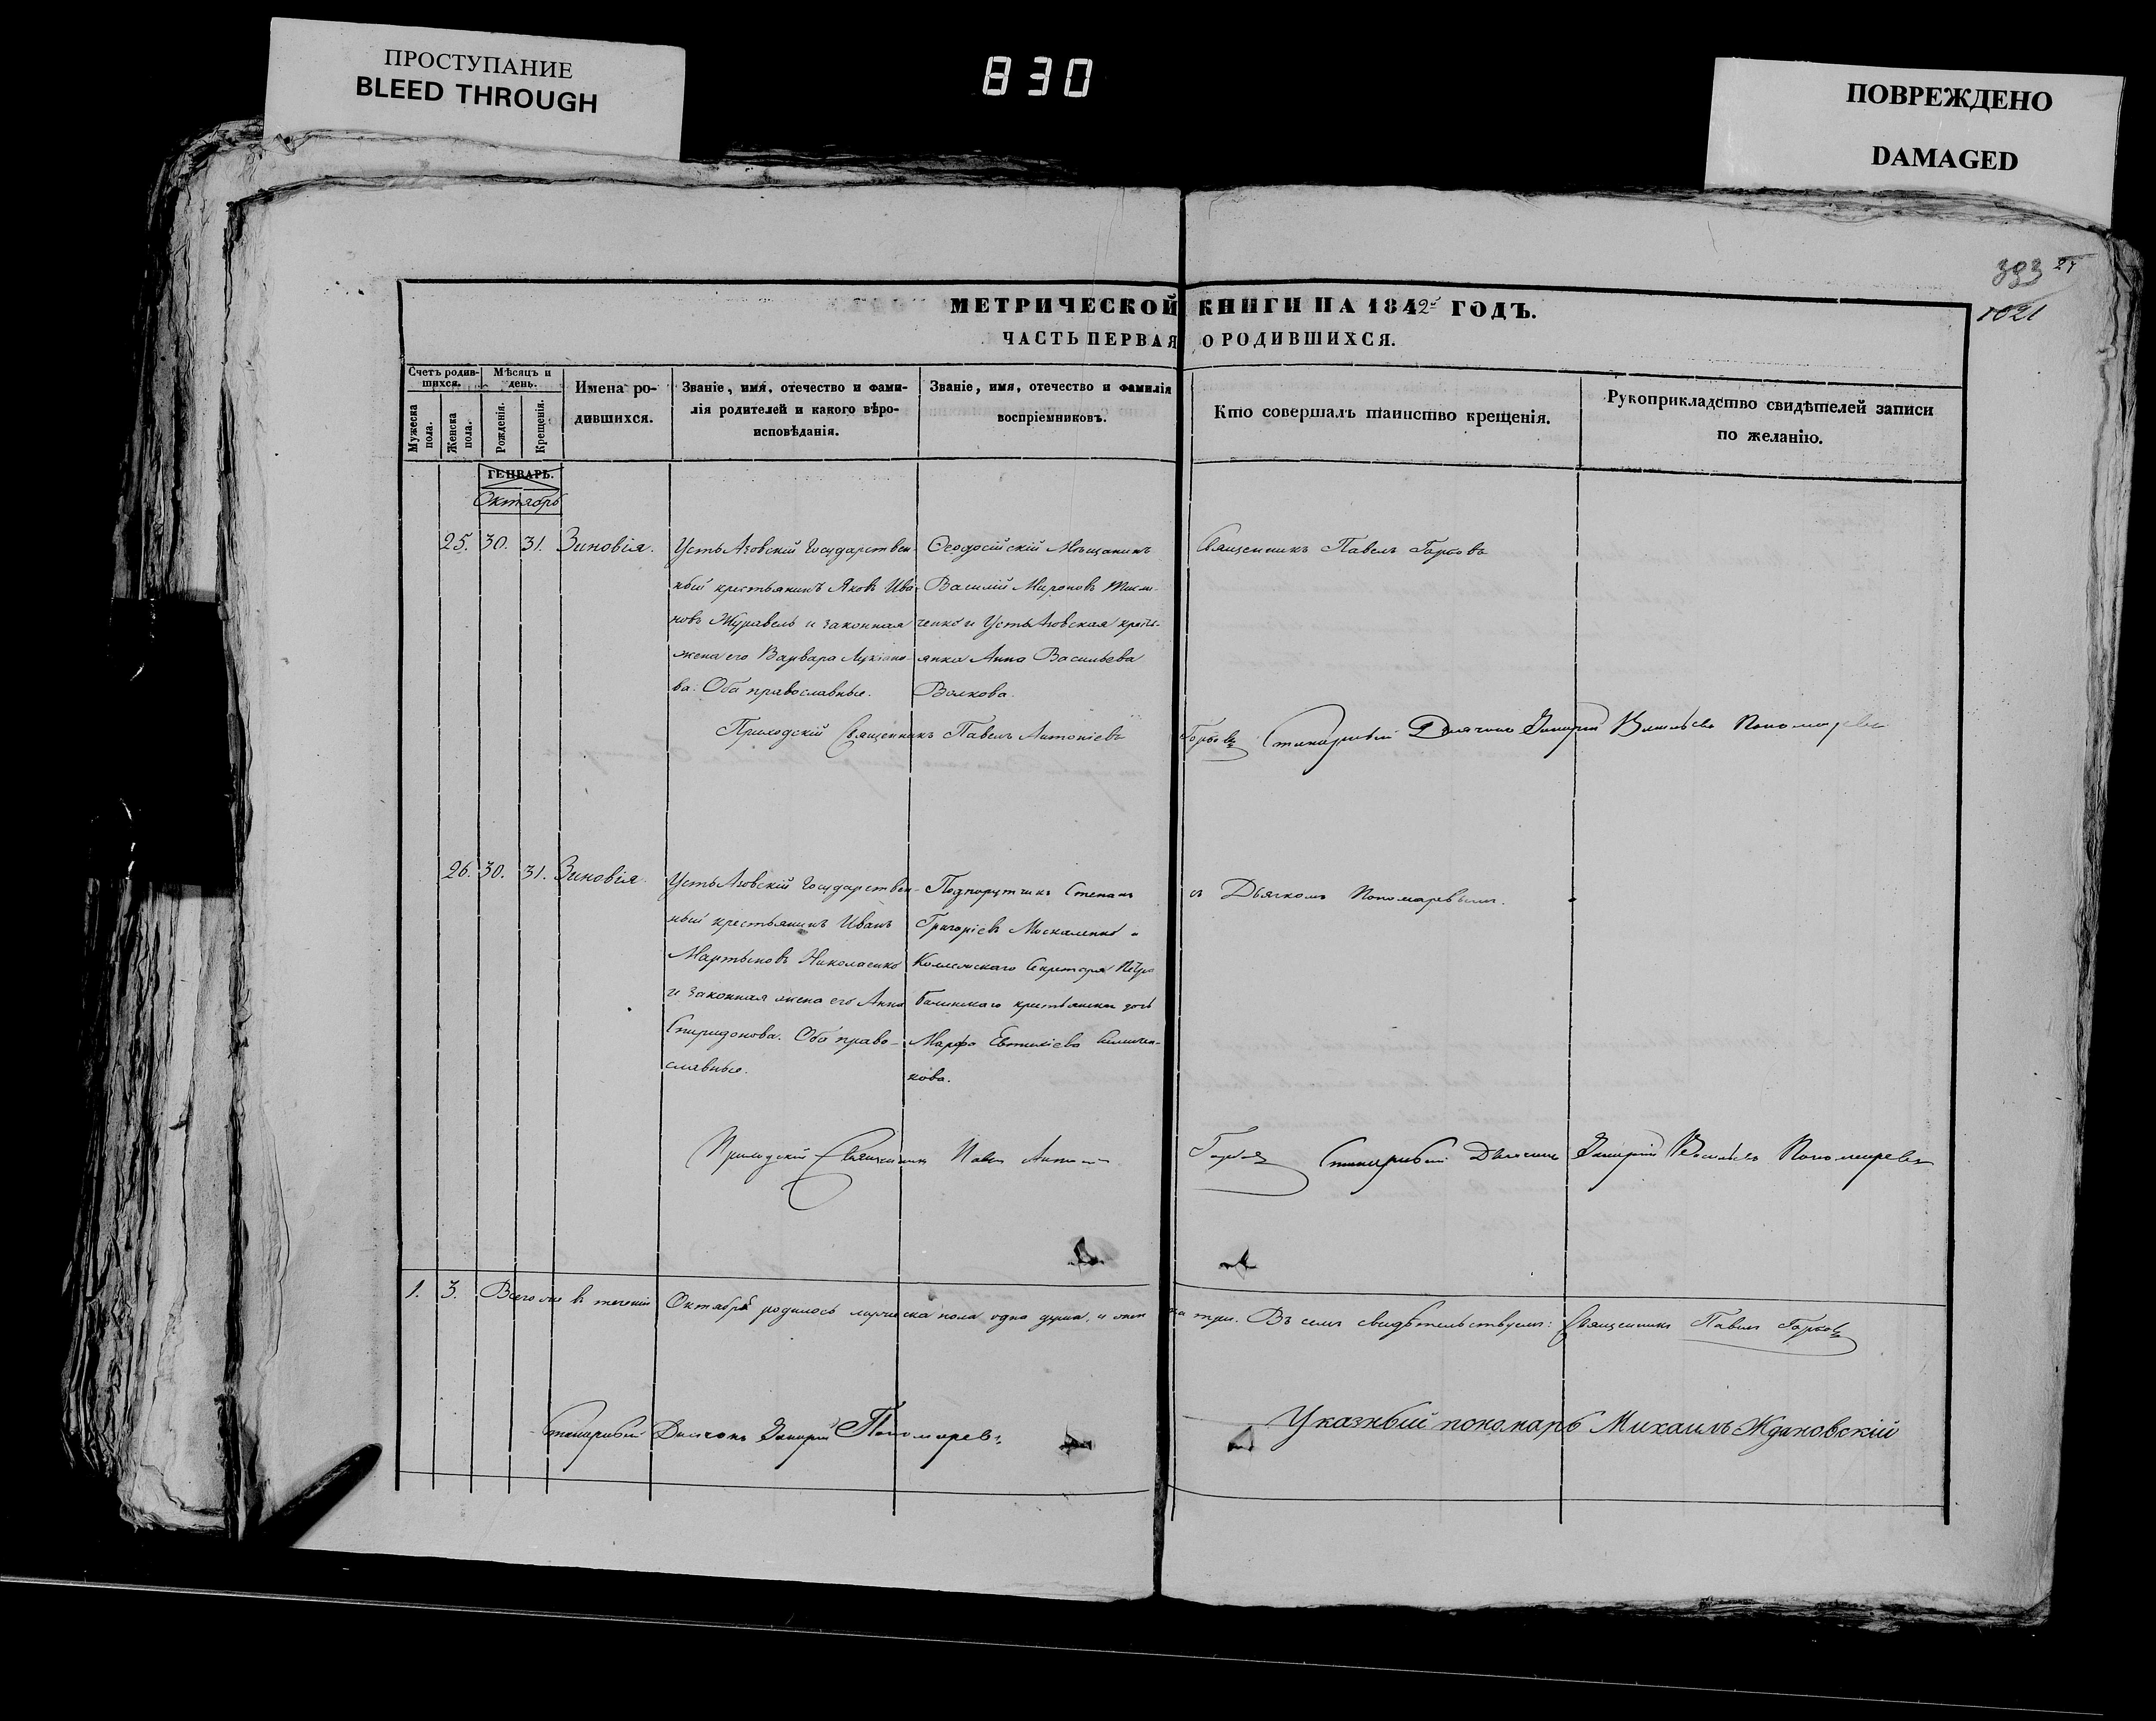 ПРОСТУПАНИЕ
BLEED THROUGH
830
ПОВРЕЖДЕНО
DAMAGED
393 27
1021
МЕТРИЧЕСКОЙ КНИГИ НА 1842й ГОДЪ.
ЧАСТЬ ПЕРВАЯ О РОДИВШИХСЯ.
Счетъ родив-
шихся.
Мужеска
пола.
Женска
пола.
Мѣсяцъ и
день.
Рожденія.
Крещенія.
Имена ро-
дившихся.
Званіе, имя, отечество и фами-
лія родителей и какого вѣро-
исповѣданія.
Званіе, имя, отечество и фамилія
воспріемниковъ.
Кто совершалъ таинство крещенія.
Рукоприкладство свидѣтелей записи
по желанію.
ГЕНВАРЬ.
Октябрь
25. 30. 31. Зиновія.
УстьАзовскій Государствен-
ный крестьянинъ Яковъ Ива-
новъ Журавель и законная
жена его Варвара Лукіано-
ва. Оба православные.
Ѳеодосійскій Мѣщанинъ
Василій Мироновъ
и УстьАзовская кресть-
янка Анна Васильева
Волкова.
Священникъ Павелъ Горбовъ
Приходскій Священникъ Павелъ Антоніевъ Горбовъ
Дьячокъ Васильевъ Пономаревъ
26. 30. 31. Зиновія
УстьАзовскій Государствен-
ный крестьянинъ Иванъ
Мартыновъ Николаенко
и законная жена его Анна
Спиридонова. Оба право-
славные.
Подпоручикъ Степанъ
Григоріевъ Москаленко и
Коллежскаго Секретаря Петра
крестьянина дочь
Марфа Евтихіева
кова.
съ Дьячкомъ Пономаревымъ.
Приходскій Священникъ Павелъ Антоніевъ Горбовъ
Дьячокъ Васильевъ Пономаревъ
1. 3. Всего же въ теченіи Октября родилось мужеска пола одна душа, и женска три. Въ семъ свидѣтельствуемъ: Священникъ Павелъ Горбовъ
Дьячокъ Пономаревъ.
Указный пономарь Михаилъ Ждановскій